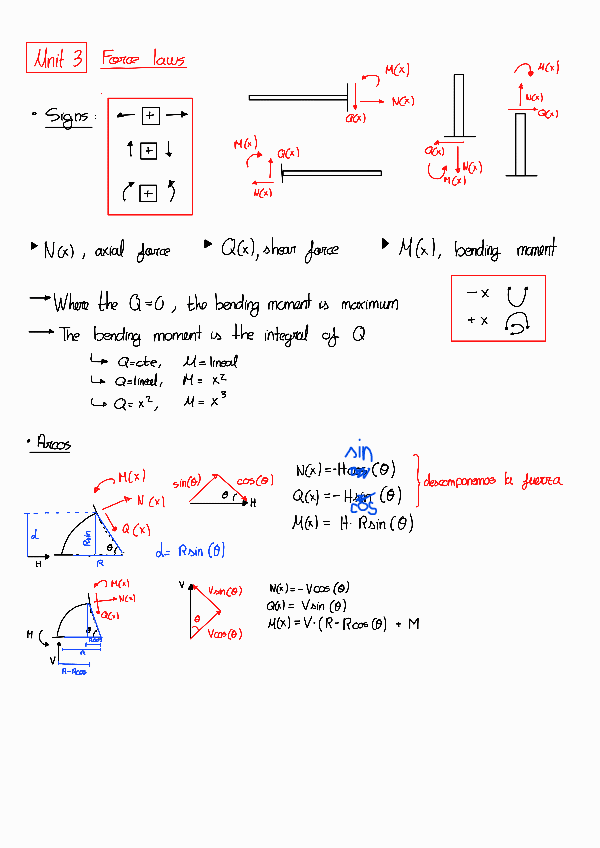 Unit 3 Force laws
M(x)
N(x)
Q(x)
M(x)
N(x)
Q(x)
• Signs:
+
+
+
M(x)
Q(x)
N(x)
Q(x)
N(x)
M(x)
▶ N(x), axial force ▶ Q(x), shear force ▶ M(x), bending moment
→ Where the Q=0, the bending moment is maximum
→ The bending moment is the integral of Q
-x
+x
↳ Q=cte, M=lineal
↳ Q=lineal, M= x²
↳ Q= x², M= x³
• Arcos
M(x)
N(x)
Q(x)
d
Rsin
θ
R
H
d= Rsin(θ)
sin(θ) cos(θ)
θ
H
sin
N(x)=-H (θ)
Q(x)=-H (θ)
cos
M(x)= H·Rsin(θ)
descomponemos la fuerza
M(x)
N(x)
Q(x)
M
V
θ
Rcos
R
R-Rcos
V
Vsin(θ)
θ
Vcos(θ)
N(x)=-Vcos(θ)
Q(x)= Vsin(θ)
M(x)=V·(R-Rcos(θ) + M